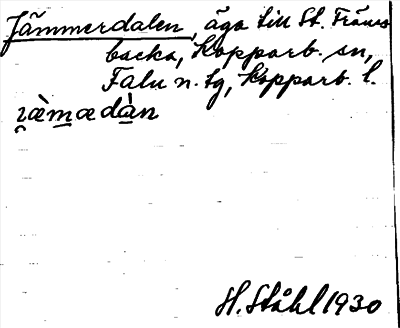 Jämmerdalen, äga till St. Fräns
backa, Kopparb. sn,
Falu n. tg, Kopparb. l.
ɪ̯æ̀m̲ædà̲n
H. Ståhl 1930